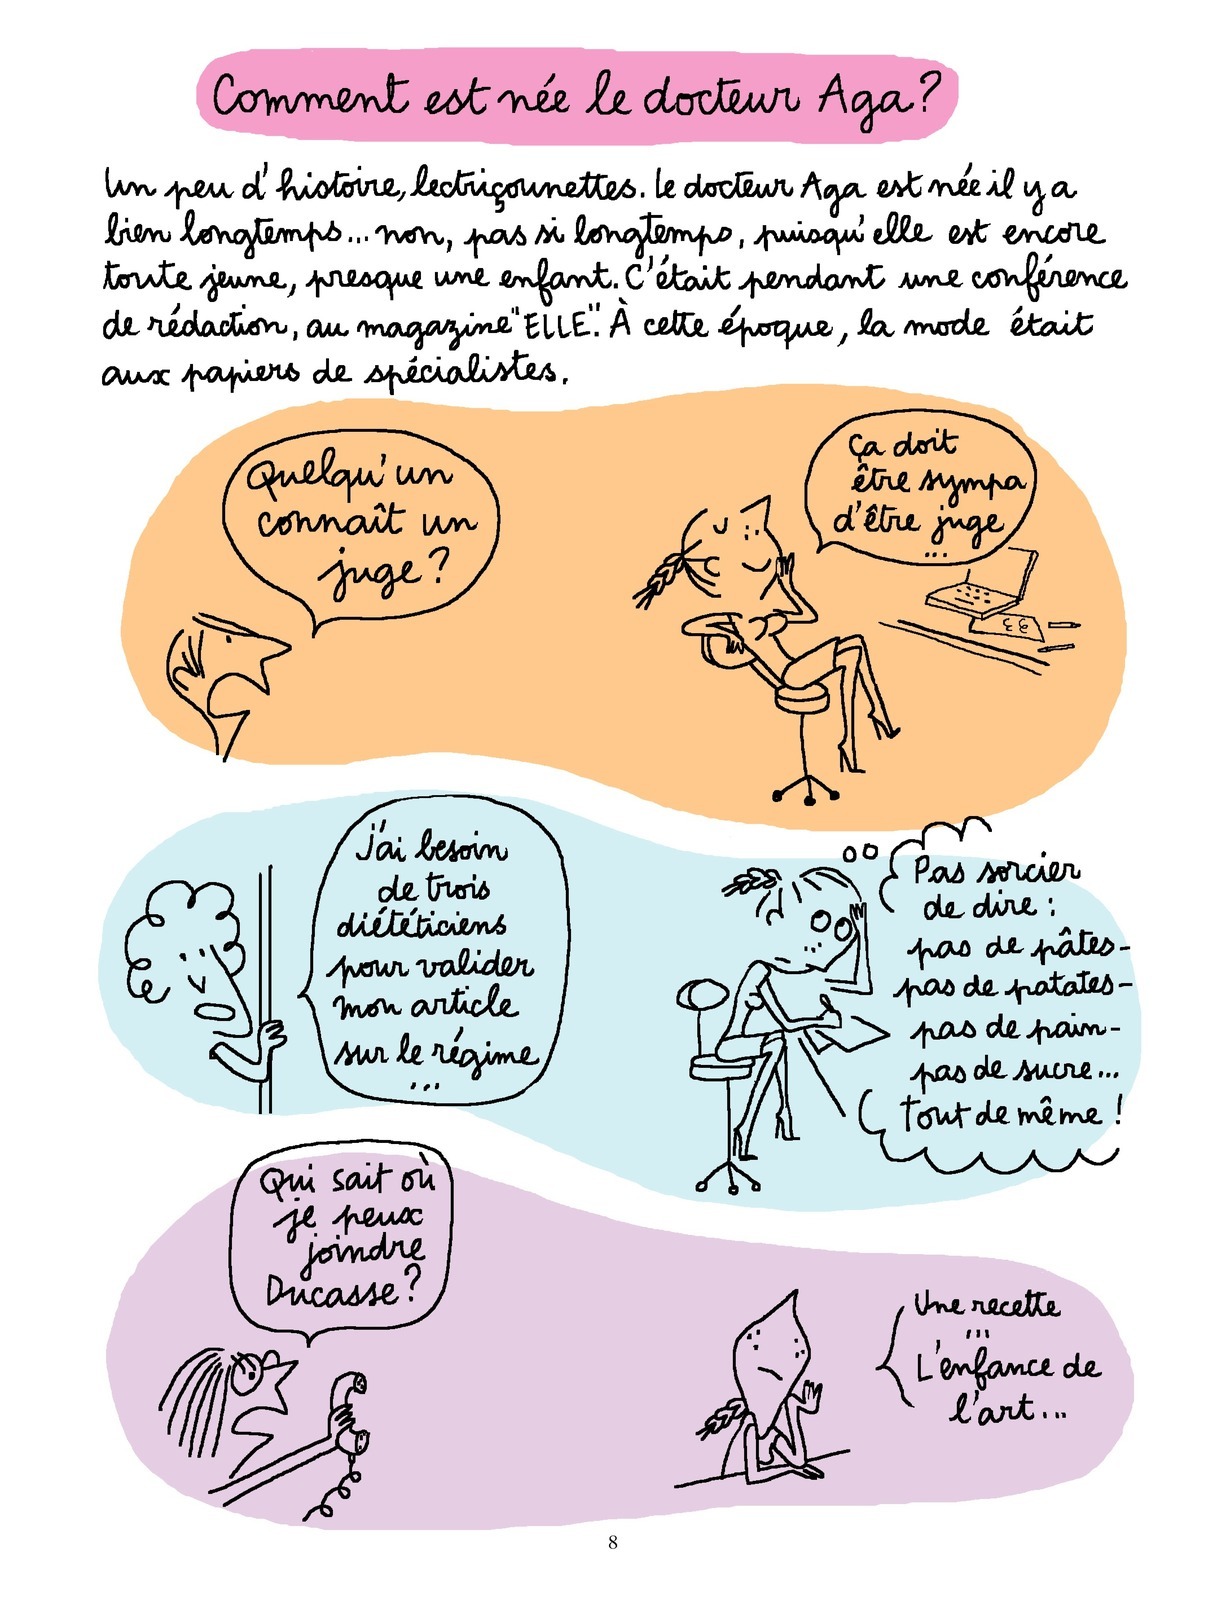 Comment est née le docteur Aga?
Un peu d'histoire, lectriçounettes. Le docteur Aga est née il y a
bien longtemps... non, pas si longtemps, puisqu'elle est encore
toute jeune, presque une enfant. C'était pendant une conférence
de rédaction, au magazine "ELLE". À cette époque, la mode était
aux papiers de spécialistes.
Quelqu'un
connaît un
juge?
Ça doit
être sympa
d'être juge
...
J'ai besoin
de trois
diététiciens
pour valider
mon article
sur le régime
...
Pas sorcier
de dire :
pas de pâtes-
pas de patates-
pas de pain-
pas de sucre...
Tout de même!
Qui sait où
je peux
joindre
Ducasse?
Une recette
...
L'enfance de
l'art...
8